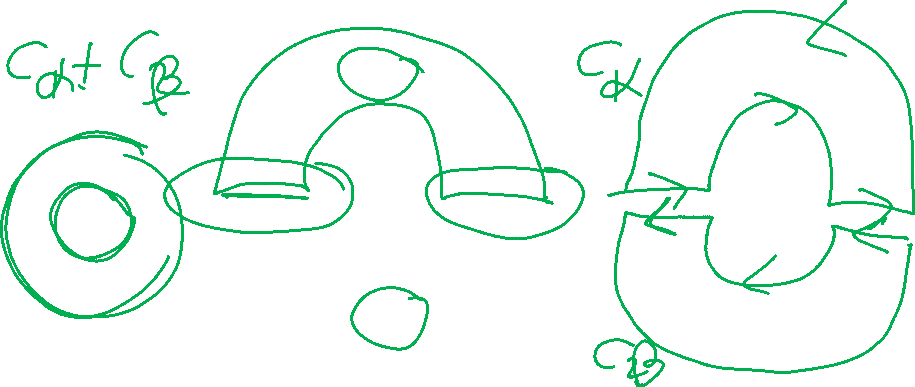 Cα + Cβ
Cα
Cβ